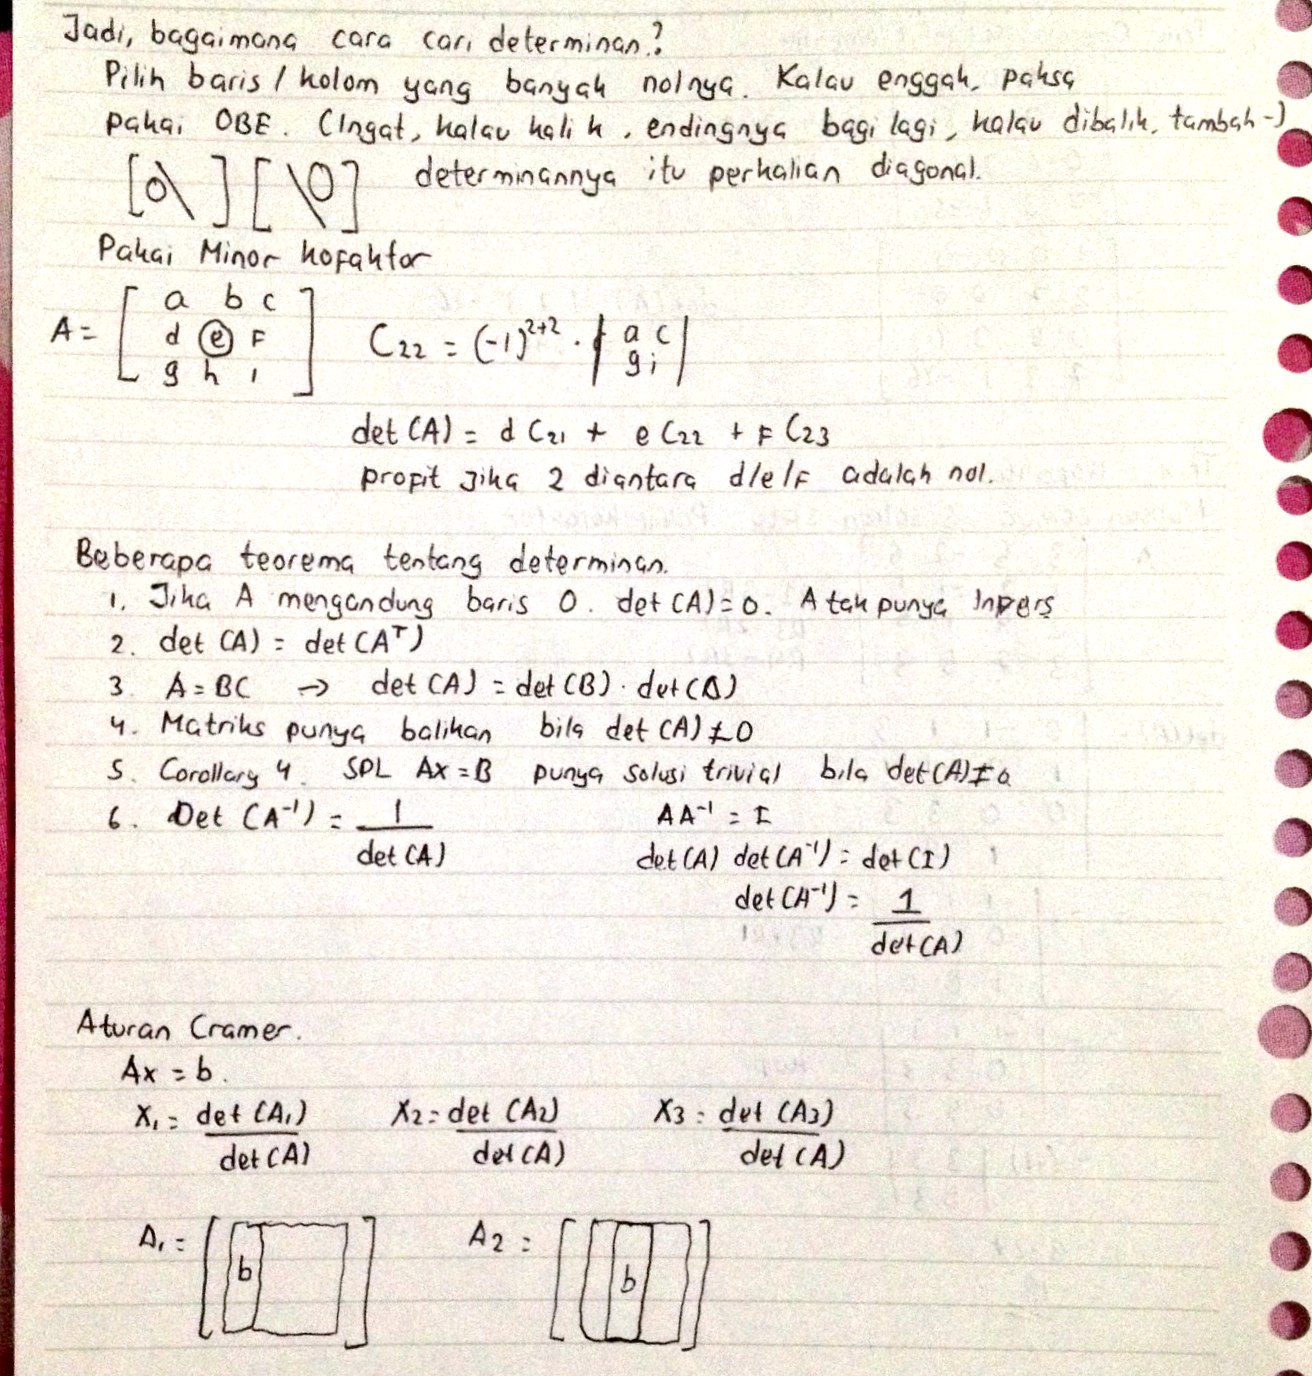 Jadi, bagaimana cara cari determinan?
Pilih baris / kolom yang banyak nolnya. Kalau enggak, paksa
pakai OBE. (Ingat, kalau kali k, endingnya bagi lagi, kalau dibalik, tambah -)
[0\ ] [\0] determinannya itu perkalian diagonal.
Pakai Minor kofaktor
A = [ a b c
d e f
g h i ]
C₂₂ = (-1)²⁺² · | a c
g i |
det (A) = d C₂₁ + e C₂₂ + F C₂₃
profit jika 2 diantara d/e/F adalah nol.
Beberapa teorema tentang determinan.
1. Jika A mengandung baris 0. det (A) = 0. A tak punya Inpers
2. det (A) = det (Aᵀ)
3. A = BC → det (A) = det (B) · det (A)
4. Matriks punya balikan bila det (A) ≠ 0
5. Corollary 4. SPL Ax = B punya solusi trivial bila det (A) ≠ 0
6. Det (A⁻¹) = 1 / det (A)
AA⁻¹ = I
det (A) det (A⁻¹) = det (I)
det (A⁻¹) = 1 / det (A)
Aturan Cramer.
Ax = b.
X₁ = det (A₁) / det (A) X₂ = det (A₂) / det (A) X₃ = det (A₃) / det (A)
A₁ = [ b ] A₂ = [ b ]